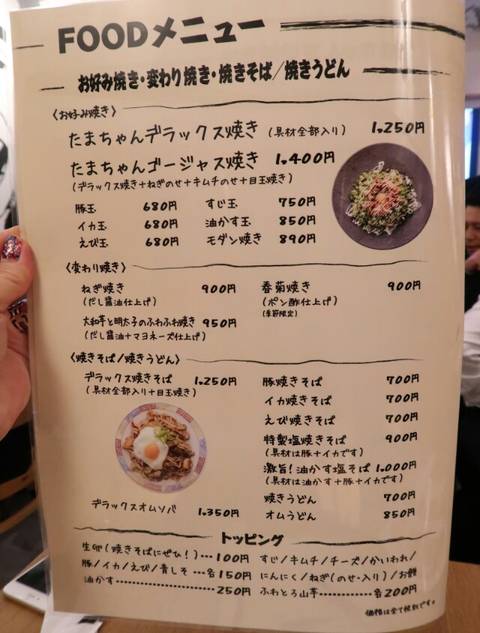 FOODメニュー
お好み焼き・変わり焼き・焼きそば/焼きうどん
〈お好み焼き〉
たまちゃんデラックス焼き (具材全部入り) 1,250円
たまちゃんゴージャス焼き 1,400円
(デラックス焼き+ねぎのせ+キムチのせ+目玉焼き)
豚玉 680円 すじ玉 750円
イカ玉 680円 油かす玉 850円
えび玉 680円 モダン焼き 890円
〈変わり焼き〉
ねぎ焼き 900円 春菊焼き 900円
(だし醤油仕上げ) (ポン酢仕上げ)
(季節限定)
大和芋と明太子のふわふわ焼き 950円
(だし醤油+マヨネーズ仕上げ)
〈焼きそば/焼きうどん〉
デラックス焼きそば 1,250円
(具材全部入り+目玉焼き)
デラックスオムソバ 1,350円
豚焼きそば 700円
イカ焼きそば 700円
えび焼きそば 700円
特製塩焼きそば 900円
(具材は豚+イカです)
激旨!油かす塩そば 1,000円
(具材は油かす+豚+イカです)
焼きうどん 700円
オムうどん 850円
トッピング
生卵(焼きそばにぜひ!)…100円
豚/イカ/えび/青しそ…各150円
油かす…………………250円
すじ/キムチ/チーズ/かいわれ/
にんにく/ねぎ(のせ・入り)/お餅
ふわとろ山芋………各200円
価格は全て税別です。